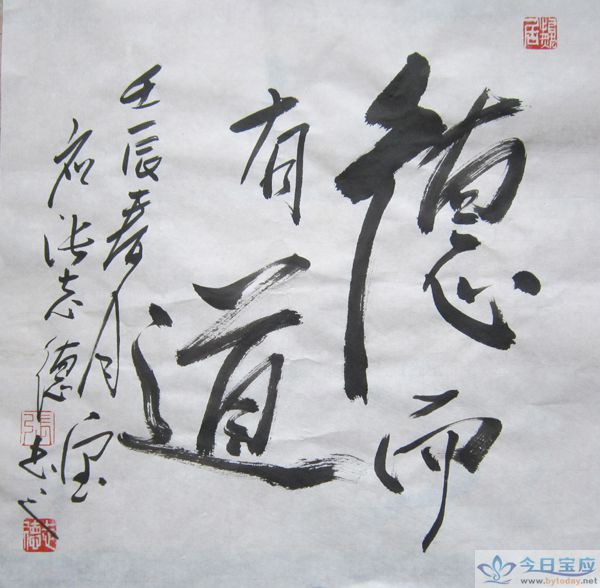 德而
有道
壬辰春月宝
应张志德
張
志德
今日宝应
www.bytoday.net